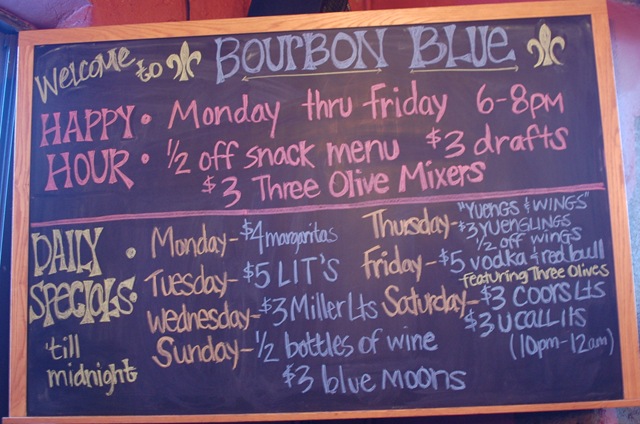 Welcome to BOURBON BLUE
HAPPY HOUR
• Monday thru Friday 6-8PM
• 1/2 off snack menu $3 drafts
$3 Three Olive Mixers
DAILY SPECIALS
'till midnight
• Monday - $4 margaritas
Tuesday - $5 LIT'S
Wednesday - $3 Miller Lts
Sunday - 1/2 bottles of wine
$3 blue Moons
Thursday - "YUENGS & WINGS"
$3 YUENGLINGS
1/2 off wings
Friday - $5 vodka & red bull
featuring Three Olives
Saturday - $3 COORS Lts
$3 U CALL ITS
(10pm-12am)